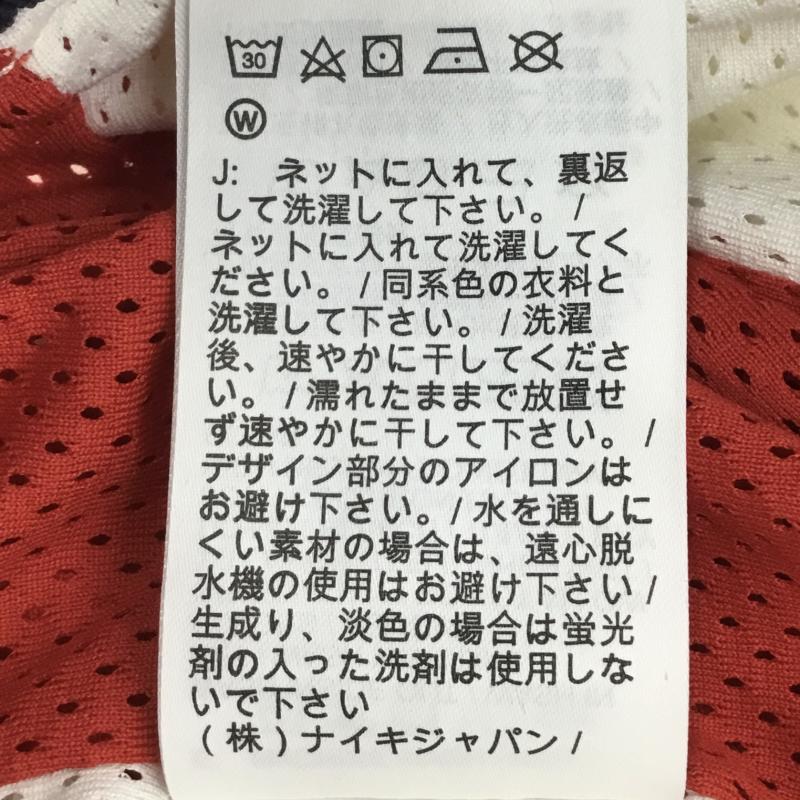 30
W
J: ネットに入れて、裏返
して洗濯して下さい。 /
ネットに入れて洗濯してく
ださい。 / 同系色の衣料と
洗濯して下さい。 / 洗濯
後、速やかに干してくださ
い。 / 濡れたままで放置せ
ず速やかに干して下さい。 /
デザイン部分のアイロンは
お避け下さい。 / 水を通しに
くい素材の場合は、遠心脱
水機の使用はお避け下さい /
生成り、淡色の場合は蛍光
剤の入った洗剤は使用しな
いで下さい
(株)ナイキジャパン /